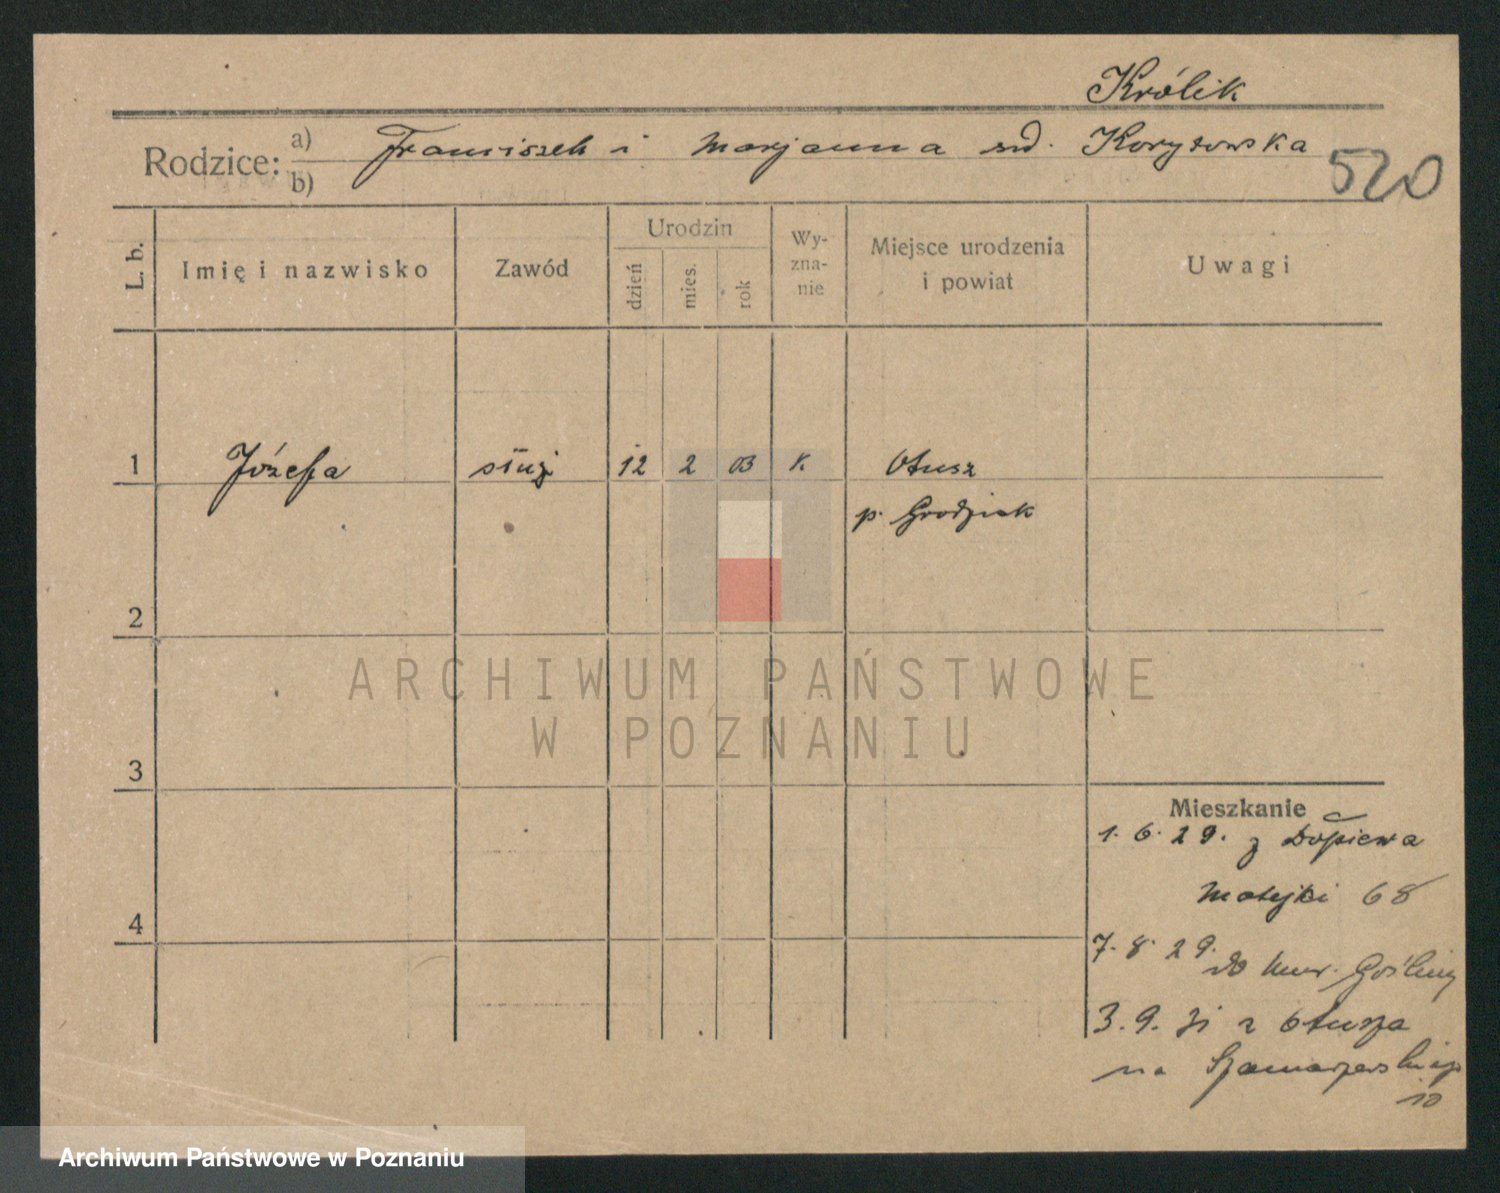 Królik
Rodzice: a) Franciszek i Marjanna
b)
520
L. b.
Imię i nazwisko
Zawód
Urodzin
dzień
mies.
rok
Wy-
zna-
nie
Miejsce urodzenia
i powiat
Uwagi
1 Józefa służ 12 2 03 k Otusz
p. Grodzisk
2
3
4
Mieszkanie
1. 6. 29. z Dopiewa
Matejki 68
7. 8. 29.
do Mur. Gośliny
3. 9. 31 z Otusza
na Szamarzewskiego
10
ARCHIWUM PAŃSTWOWE
W POZNANIU
Archiwum Państwowe w Poznaniu